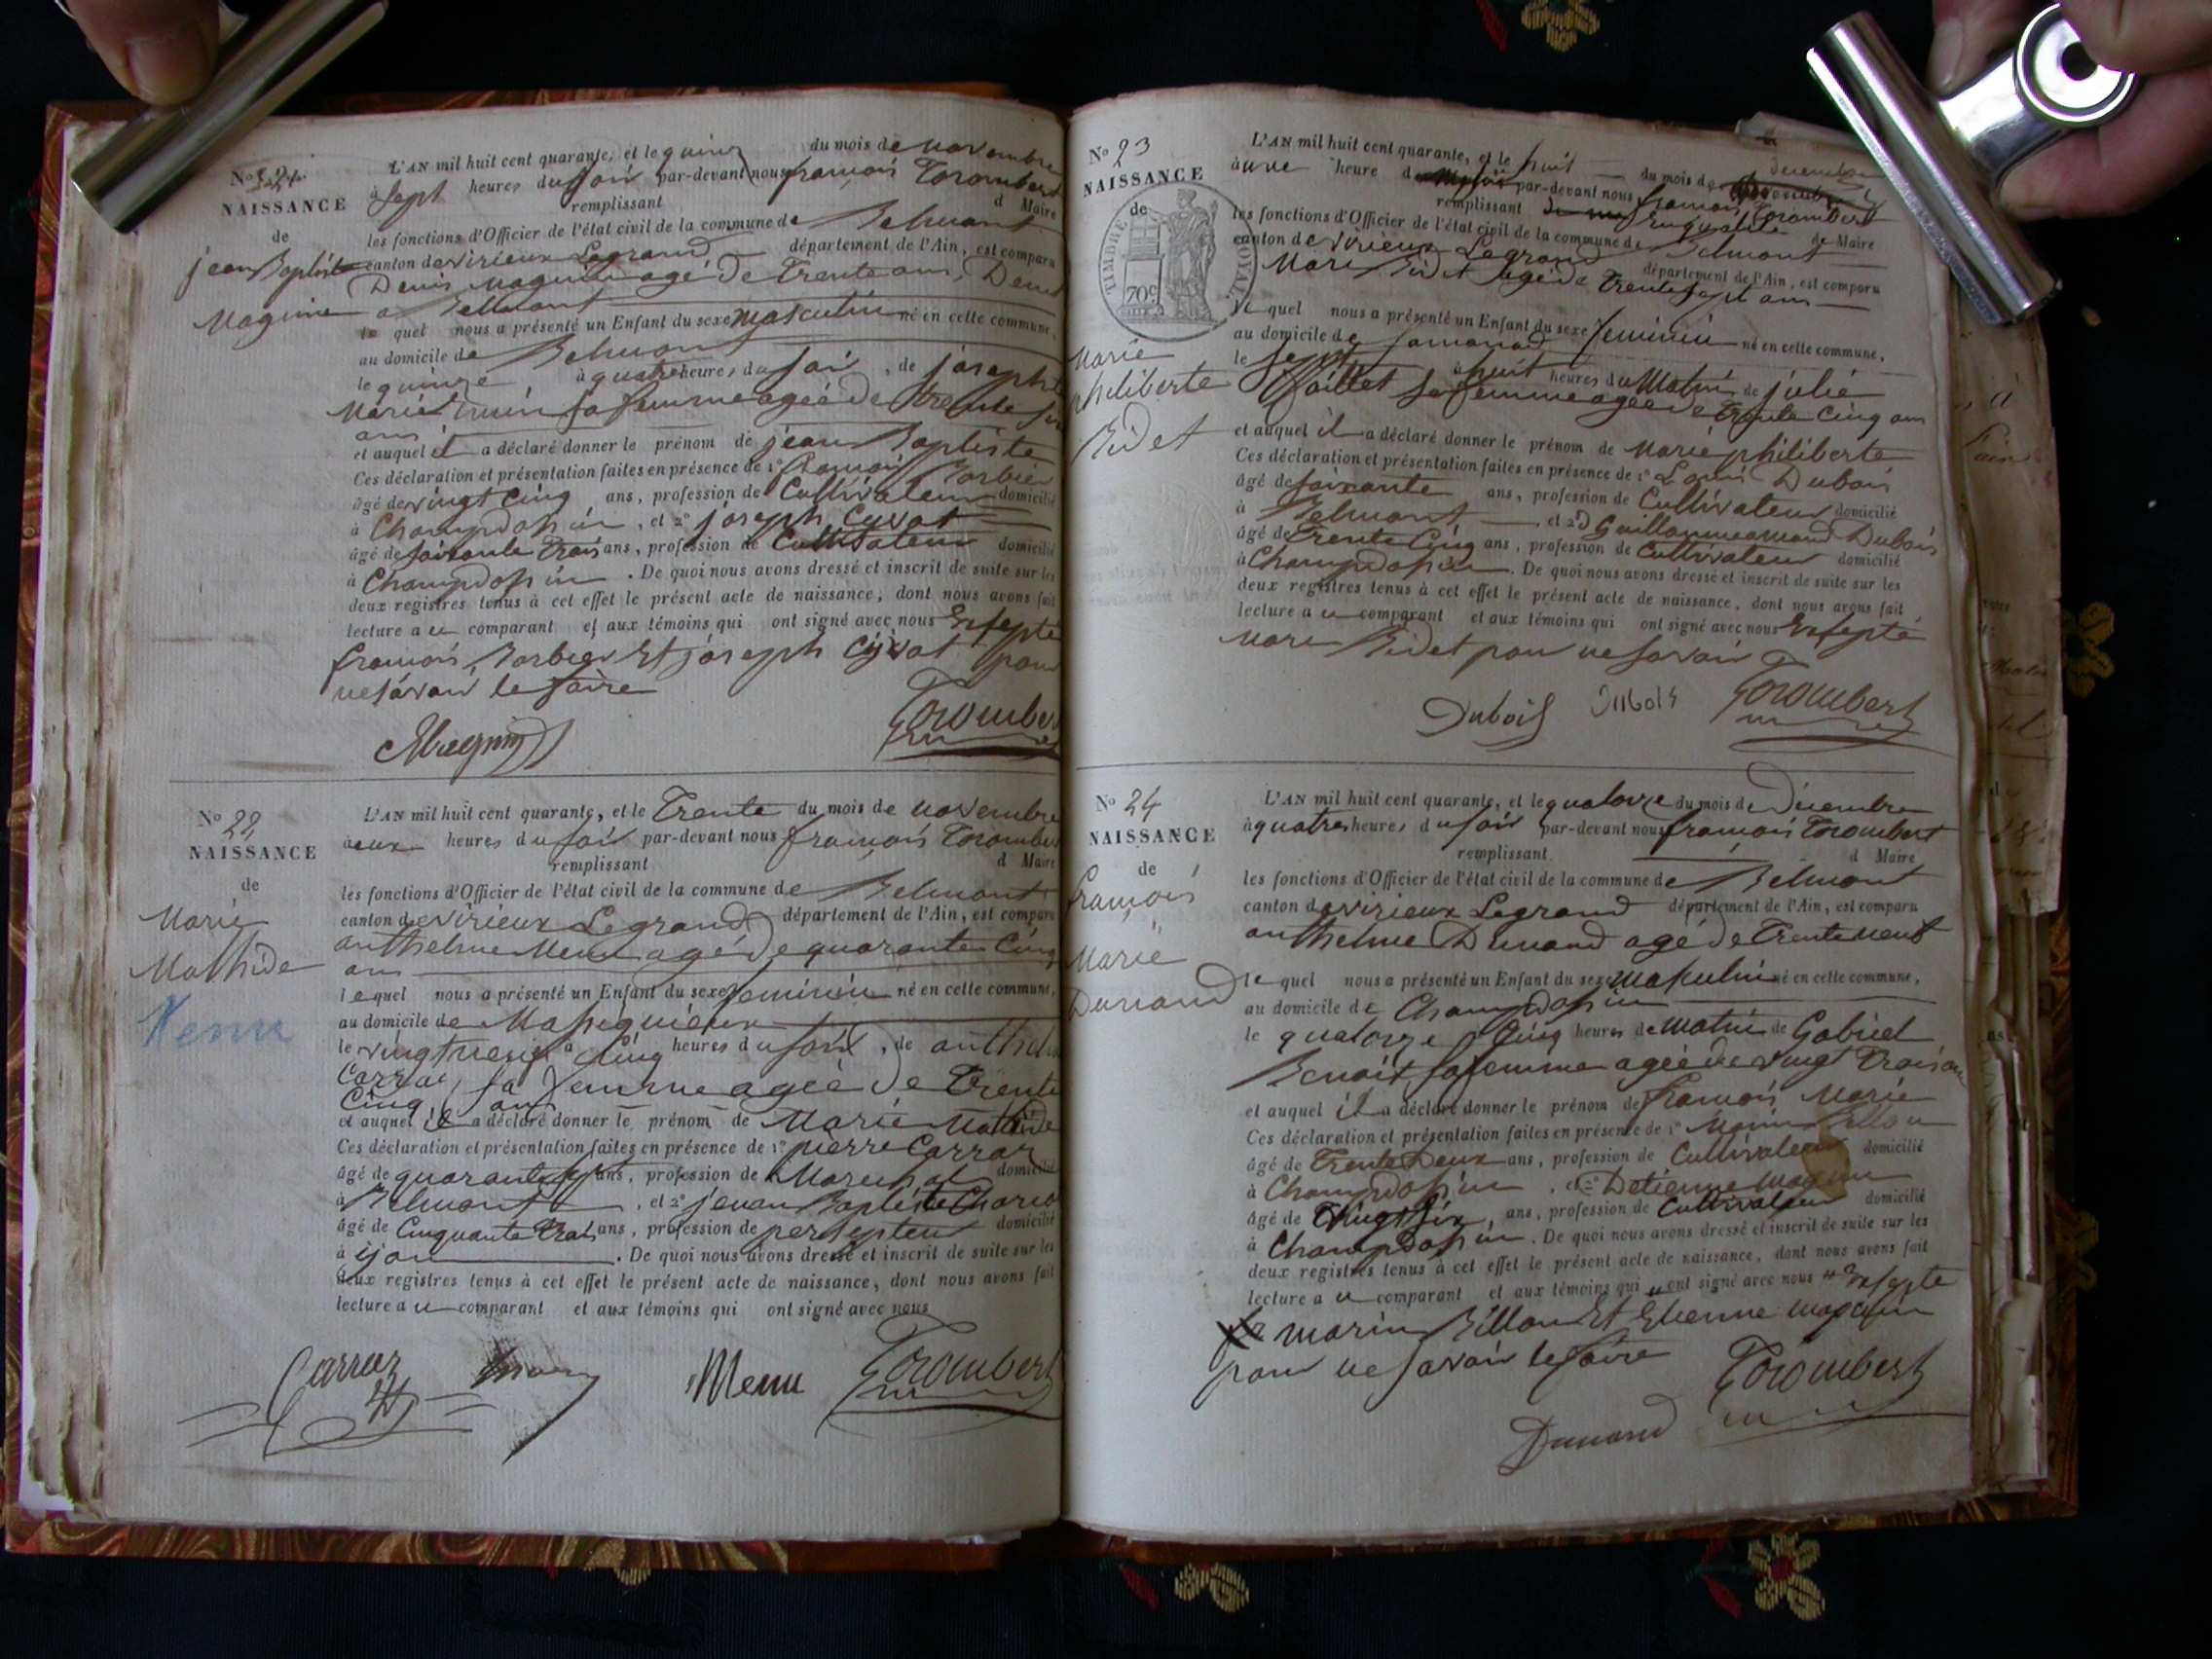 No 21
NAISSANCE
de
jean Baptiste
Magnin
L'AN mil huit cent quarante, et le quinz du mois de novembre
à Sept heures du Soir par-devant nous françois Trombert
remplissant d Maire
les fonctions d'Officier de l'état civil de la commune de Belmont
canton de virieux Legrand département de l'Ain, est comparu
Denis Magnin agé De Trente ans,
a Belmont
le quel nous a présenté un Enfant du sexe masculin né en cette commune,
au domicile de Belmont
le quinze, à quatre heures du Soir, de josephte
Sa femme ageé de trente
ans
et auquel il a déclaré donner le prénom de jean Baptiste
Ces déclaration et présentation faites en présence de 1° françois Barbier
âgé de vingt Cinq ans, profession de Cultivateur domicilié
à Champdossin, et 2° joseph Cyvot
âgé de soixante Trois ans, profession de Cultivateur domicilié
à Champdossin. De quoi nous avons dressé et inscrit de suite sur les
deux registres tenus à cet effet le présent acte de naissance, dont nous avons fait
lecture a u comparant et aux témoins qui ont signé avec nous Exsepté
françois Barbier Et joseph Cyvot pour
ne savoir le faire
Magnin Trombert
No 22
NAISSANCE
de
Marie
Mathide
Menu
L'AN mil huit cent quarante, et le Trente du mois de novembre
à eux heures du soir par-devant nous françois Trombert
remplissant d Maire
les fonctions d'Officier de l'état civil de la commune de Belmont
canton de virieux Legrand département de l'Ain, est comparu
anthelme Menu agé De quarante Cinq
ans
le quel nous a présenté un Enfant du sexe feminin né en cette commune,
au domicile de Massiguieux
le vingt neuf à Cinq heures du soir, de anthelme
Carraz, sa femme ageé De Trente
Cinq ans
et auquel il a déclaré donner le prénom de Marie Mathide
Ces déclaration et présentation faites en présence de 1° pierre Carraz
âgé de quarante ans, profession de Marechal domicilié
à Belmont, et 2° jeuan Baptiste
âgé de Cinquante trois ans, profession de persepteur domicilié
à ijou. De quoi nous avons dressé et inscrit de suite sur les
deux registres tenus à cet effet le présent acte de naissance, dont nous avons fait
lecture a u comparant et aux témoins qui ont signé avec nous
Carraz Menu Trombert
No 23
NAISSANCE
de
TIMBRE ROYAL
70c
Marie
philiberte
Bidet
L'AN mil huit cent quarante, et le huit du mois de decembre
à une heure d par-devant nous françois Trombert
remplissant En qualité de Maire
les fonctions d'Officier de l'état civil de la commune de Belmont
canton de virieux Legrand département de l'Ain, est comparu
Marc Bidet agé de Trente sept ans
le quel nous a présenté un Enfant du sexe feminin né en cette commune,
au domicile de
le sept, à huit heures du Matin de julie
sa femme ageé de Trente Cinq ans
et auquel il a déclaré donner le prénom de Marie philiberte
Ces déclaration et présentation faites en présence de 1° Louis Dubois
âgé de soixante ans, profession de Cultivateur domicilié
à Belmont, et 2° Dubois
âgé de Trente Cinq ans, profession de Cultivateur domicilié
à Champdossin. De quoi nous avons dressé et inscrit de suite sur les
deux registres tenus à cet effet le présent acte de naissance, dont nous avons fait
lecture a u comparant et aux témoins qui ont signé avec nous Exsepté
Marc Bidet pour ne savoir
Dubois Dubois Trombert
No 24
NAISSANCE
de
françois
Marie
Dunand
L'AN mil huit cent quarante, et le quatorze du mois de Décembre
à quatre heures du soir par-devant nous françois Trombert
remplissant d Maire
les fonctions d'Officier de l'état civil de la commune de Belmont
canton de virieux Legrand département de l'Ain, est comparu
anthelme Dunand agé de Trente neuf
le quel nous a présenté un Enfant du sexe masculin né en cette commune,
au domicile de Champdossin
le quatorze Cinq heures de matin de Gabriel
Benoit, sa femme ageé de vingt Trois an
et auquel il a déclaré donner le prénom de françois Marie
Ces déclaration et présentation faites en présence de 1° Marin Billon
âgé de Trente Deux ans, profession de Cultivateur domicilié
à Champdossin, et 2° Detienne Magnin
âgé de vingt Six, ans, profession de Cultivateur domicilié
à Champdossin. De quoi nous avons dressé et inscrit de suite sur les
deux registres tenus à cet effet le présent acte de naissance, dont nous avons fait
lecture a u comparant et aux témoins qui ont signé avec nous Exsepte
Marin Billon Et Etienne Magnin
pour ne savoir le faire
Trombert
Dunand